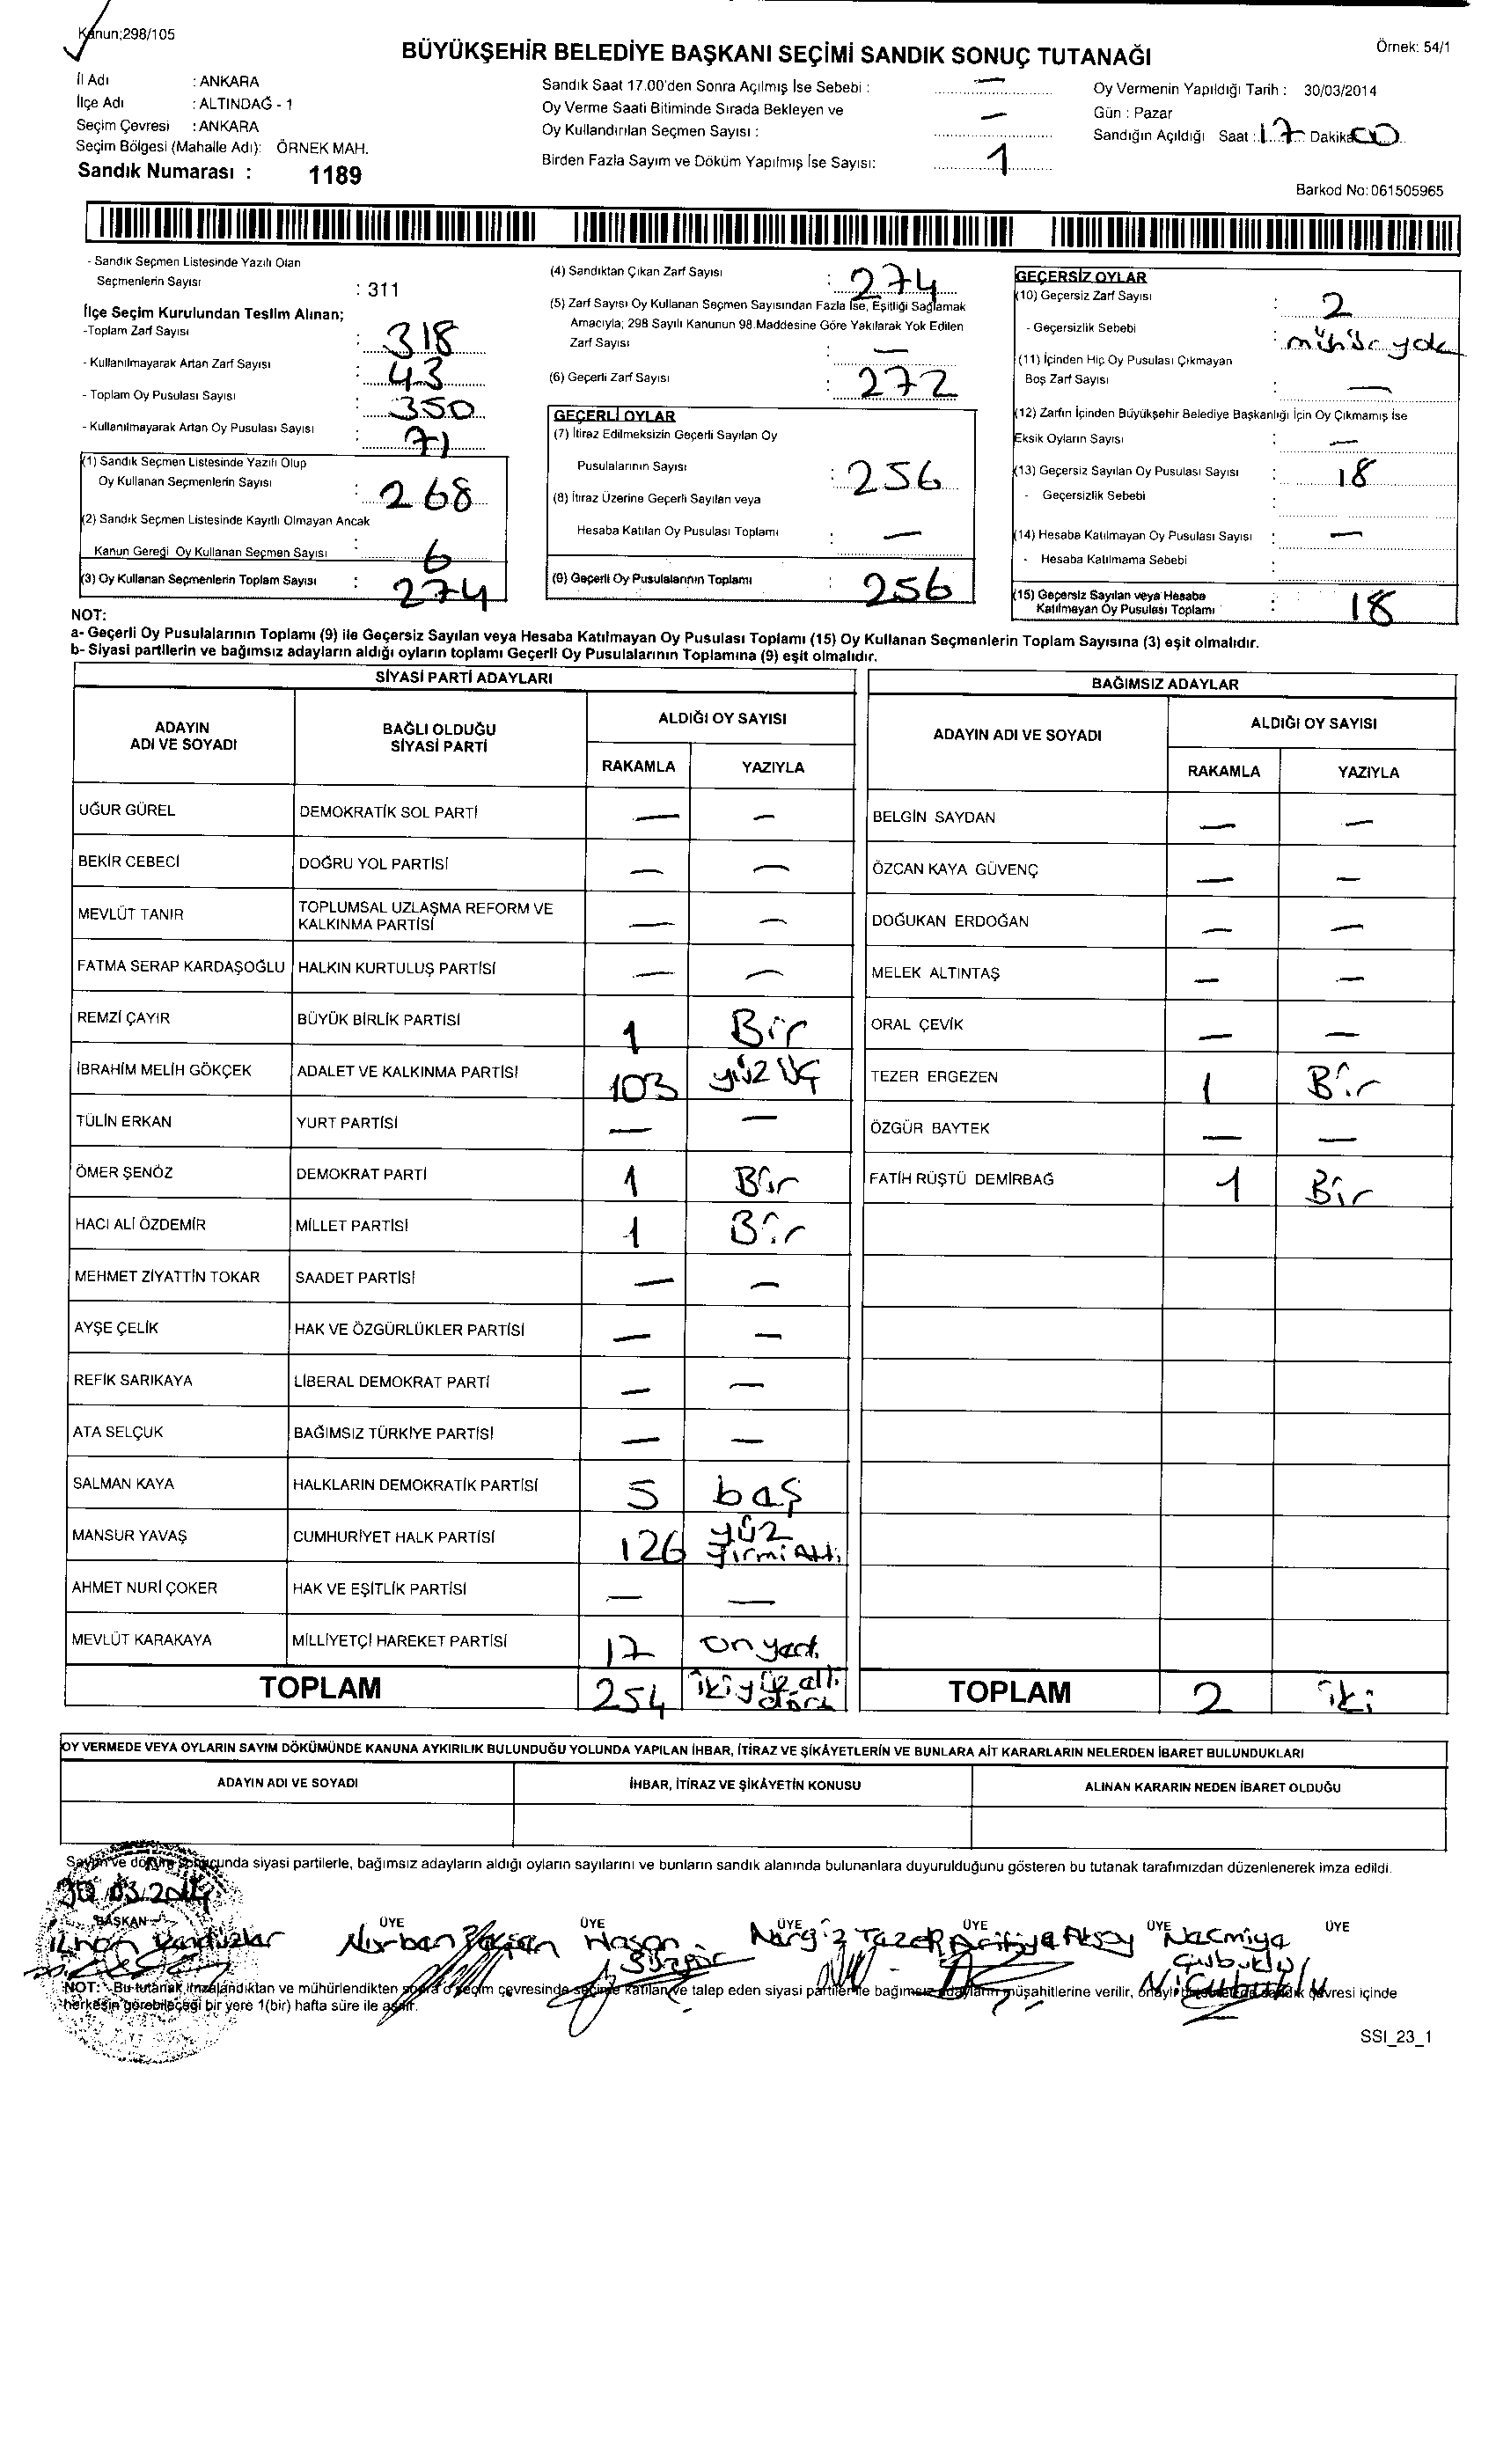 Kanun;298/105
Örnek: 54/1
BÜYÜKŞEHİR BELEDİYE BAŞKANI SEÇİMİ SANDIK SONUÇ TUTANAĞI
İl Adı : ANKARA
İlçe Adı : ALTINDAĞ - 1
Seçim Çevresi : ANKARA
Seçim Bölgesi (Mahalle Adı): ÖRNEK MAH.
Sandık Numarası : 1189
Sandık Saat 17.00'den Sonra Açılmış İse Sebebi : —
Oy Verme Saati Bitiminde Sırada Bekleyen ve
Oy Kullandırılan Seçmen Sayısı : —
Birden Fazla Sayım ve Döküm Yapılmış İse Sayısı: 1
Oy Vermenin Yapıldığı Tarih : 30/03/2014
Gün : Pazar
Sandığın Açıldığı Saat : 17 Dakika 00
Barkod No:061505965
- Sandık Seçmen Listesinde Yazılı Olan
Seçmenlerin Sayısı : 311
İlçe Seçim Kurulundan Teslim Alınan;
-Toplam Zarf Sayısı : 318
- Kullanılmayarak Artan Zarf Sayısı : 43
- Toplam Oy Pusulası Sayısı : 350
- Kullanılmayarak Artan Oy Pusulası Sayısı : 71
(1) Sandık Seçmen Listesinde Yazılı Olup
Oy Kullanan Seçmenlerin Sayısı : 268
(2) Sandık Seçmen Listesinde Kayıtlı Olmayan Ancak
Kanun Gereği Oy Kullanan Seçmen Sayısı : 6
(3) Oy Kullanan Seçmenlerin Toplam Sayısı : 274
(4) Sandıktan Çıkan Zarf Sayısı : 274
(5) Zarf Sayısı Oy Kullanan Seçmen Sayısından Fazla İse, Eşitliği Sağlamak
Amacıyla; 298 Sayılı Kanunun 98.Maddesine Göre Yakılarak Yok Edilen
Zarf Sayısı : —
(6) Geçerli Zarf Sayısı : 272
GEÇERLİ OYLAR
(7) İtiraz Edilmeksizin Geçerli Sayılan Oy
Pusulalarının Sayısı : 256
(8) İtiraz Üzerine Geçerli Sayılan veya
Hesaba Katılan Oy Pusulası Toplamı : —
(9) Geçerli Oy Pusulalarının Toplamı : 256
GEÇERSİZ OYLAR
(10) Geçersiz Zarf Sayısı : 2
- Geçersizlik Sebebi : mühür yok
(11) İçinden Hiç Oy Pusulası Çıkmayan
Boş Zarf Sayısı : —
(12) Zarfın İçinden Büyükşehir Belediye Başkanlığı İçin Oy Çıkmamış İse
Eksik Oyların Sayısı : —
(13) Geçersiz Sayılan Oy Pusulası Sayısı : 18
- Geçersizlik Sebebi :
(14) Hesaba Katılmayan Oy Pusulası Sayısı : —
- Hesaba Katılmama Sebebi :
(15) Geçersiz Sayılan veya Hesaba
Katılmayan Oy Pusulası Toplamı : 18
NOT:
a- Geçerli Oy Pusulalarının Toplamı (9) ile Geçersiz Sayılan veya Hesaba Katılmayan Oy Pusulası Toplamı (15) Oy Kullanan Seçmenlerin Toplam Sayısına (3) eşit olmalıdır.
b- Siyasi partilerin ve bağımsız adayların aldığı oyların toplamı Geçerli Oy Pusulalarının Toplamına (9) eşit olmalıdır.
SİYASİ PARTİ ADAYLARI
ADAYIN ADI VE SOYADI BAĞLI OLDUĞU SİYASİ PARTİ ALDIĞI OY SAYISI
RAKAMLA YAZIYLA
UĞUR GÜREL DEMOKRATİK SOL PARTİ — —
BEKİR CEBECİ DOĞRU YOL PARTİSİ — —
MEVLÜT TANIR TOPLUMSAL UZLAŞMA REFORM VE KALKINMA PARTİSİ — —
FATMA SERAP KARDAŞOĞLU HALKIN KURTULUŞ PARTİSİ — —
REMZİ ÇAYIR BÜYÜK BİRLİK PARTİSİ 1 Bir
İBRAHİM MELİH GÖKÇEK ADALET VE KALKINMA PARTİSİ 103 yüz üç
TÜLİN ERKAN YURT PARTİSİ — —
ÖMER ŞENÖZ DEMOKRAT PARTİ 1 Bir
HACI ALİ ÖZDEMİR MİLLET PARTİSİ 1 Bir
MEHMET ZİYATTİN TOKAR SAADET PARTİSİ — —
AYŞE ÇELİK HAK VE ÖZGÜRLÜKLER PARTİSİ — —
REFİK SARIKAYA LİBERAL DEMOKRAT PARTİ — —
ATA SELÇUK BAĞIMSIZ TÜRKİYE PARTİSİ — —
SALMAN KAYA HALKLARIN DEMOKRATİK PARTİSİ 5 baş
MANSUR YAVAŞ CUMHURİYET HALK PARTİSİ 126 yüz yirmi Altı
AHMET NURİ ÇOKER HAK VE EŞİTLİK PARTİSİ — —
MEVLÜT KARAKAYA MİLLİYETÇİ HAREKET PARTİSİ 17 on yedi
TOPLAM 254
BAĞIMSIZ ADAYLAR
ADAYIN ADI VE SOYADI ALDIĞI OY SAYISI
RAKAMLA YAZIYLA
BELGİN SAYDAN — —
ÖZCAN KAYA GÜVENÇ — —
DOĞUKAN ERDOĞAN — —
MELEK ALTINTAŞ — —
ORAL ÇEVİK — —
TEZER ERGEZEN 1 Bir
ÖZGÜR BAYTEK — —
FATİH RÜŞTÜ DEMİRBAĞ 1 Bir
TOPLAM 2 iki
OY VERMEDE VEYA OYLARIN SAYIM DÖKÜMÜNDE KANUNA AYKIRILIK BULUNDUĞU YOLUNDA YAPILAN İHBAR, İTİRAZ VE ŞİKÂYETLERİN VE BUNLARA AİT KARARLARIN NELERDEN İBARET BULUNDUKLARI
ADAYIN ADI VE SOYADI İHBAR, İTİRAZ VE ŞİKÂYETİN KONUSU ALINAN KARARIN NEDEN İBARET OLDUĞU
Sayım ve döküm sonucunda siyasi partilerle, bağımsız adayların aldığı oyların sayılarını ve bunların sandık alanında bulunanlara duyurulduğunu gösteren bu tutanak tarafımızdan düzenlenerek imza edildi.
30.03.2014
BAŞKAN ÜYE ÜYE ÜYE ÜYE ÜYE ÜYE
Nurban Hasan Nargiz Tazer Aksoy Nacmiya
Çubuklu
NOT: Bu tutanak, imzalandıktan ve mühürlendikten sonra o seçim çevresinde seçime katılan ve talep eden siyasi partiler ile bağımsız adayların müşahitlerine verilir, çevresi içinde
herkesin görebileceği bir yere 1(bir) hafta süre ile asılır.
SSI_23_1